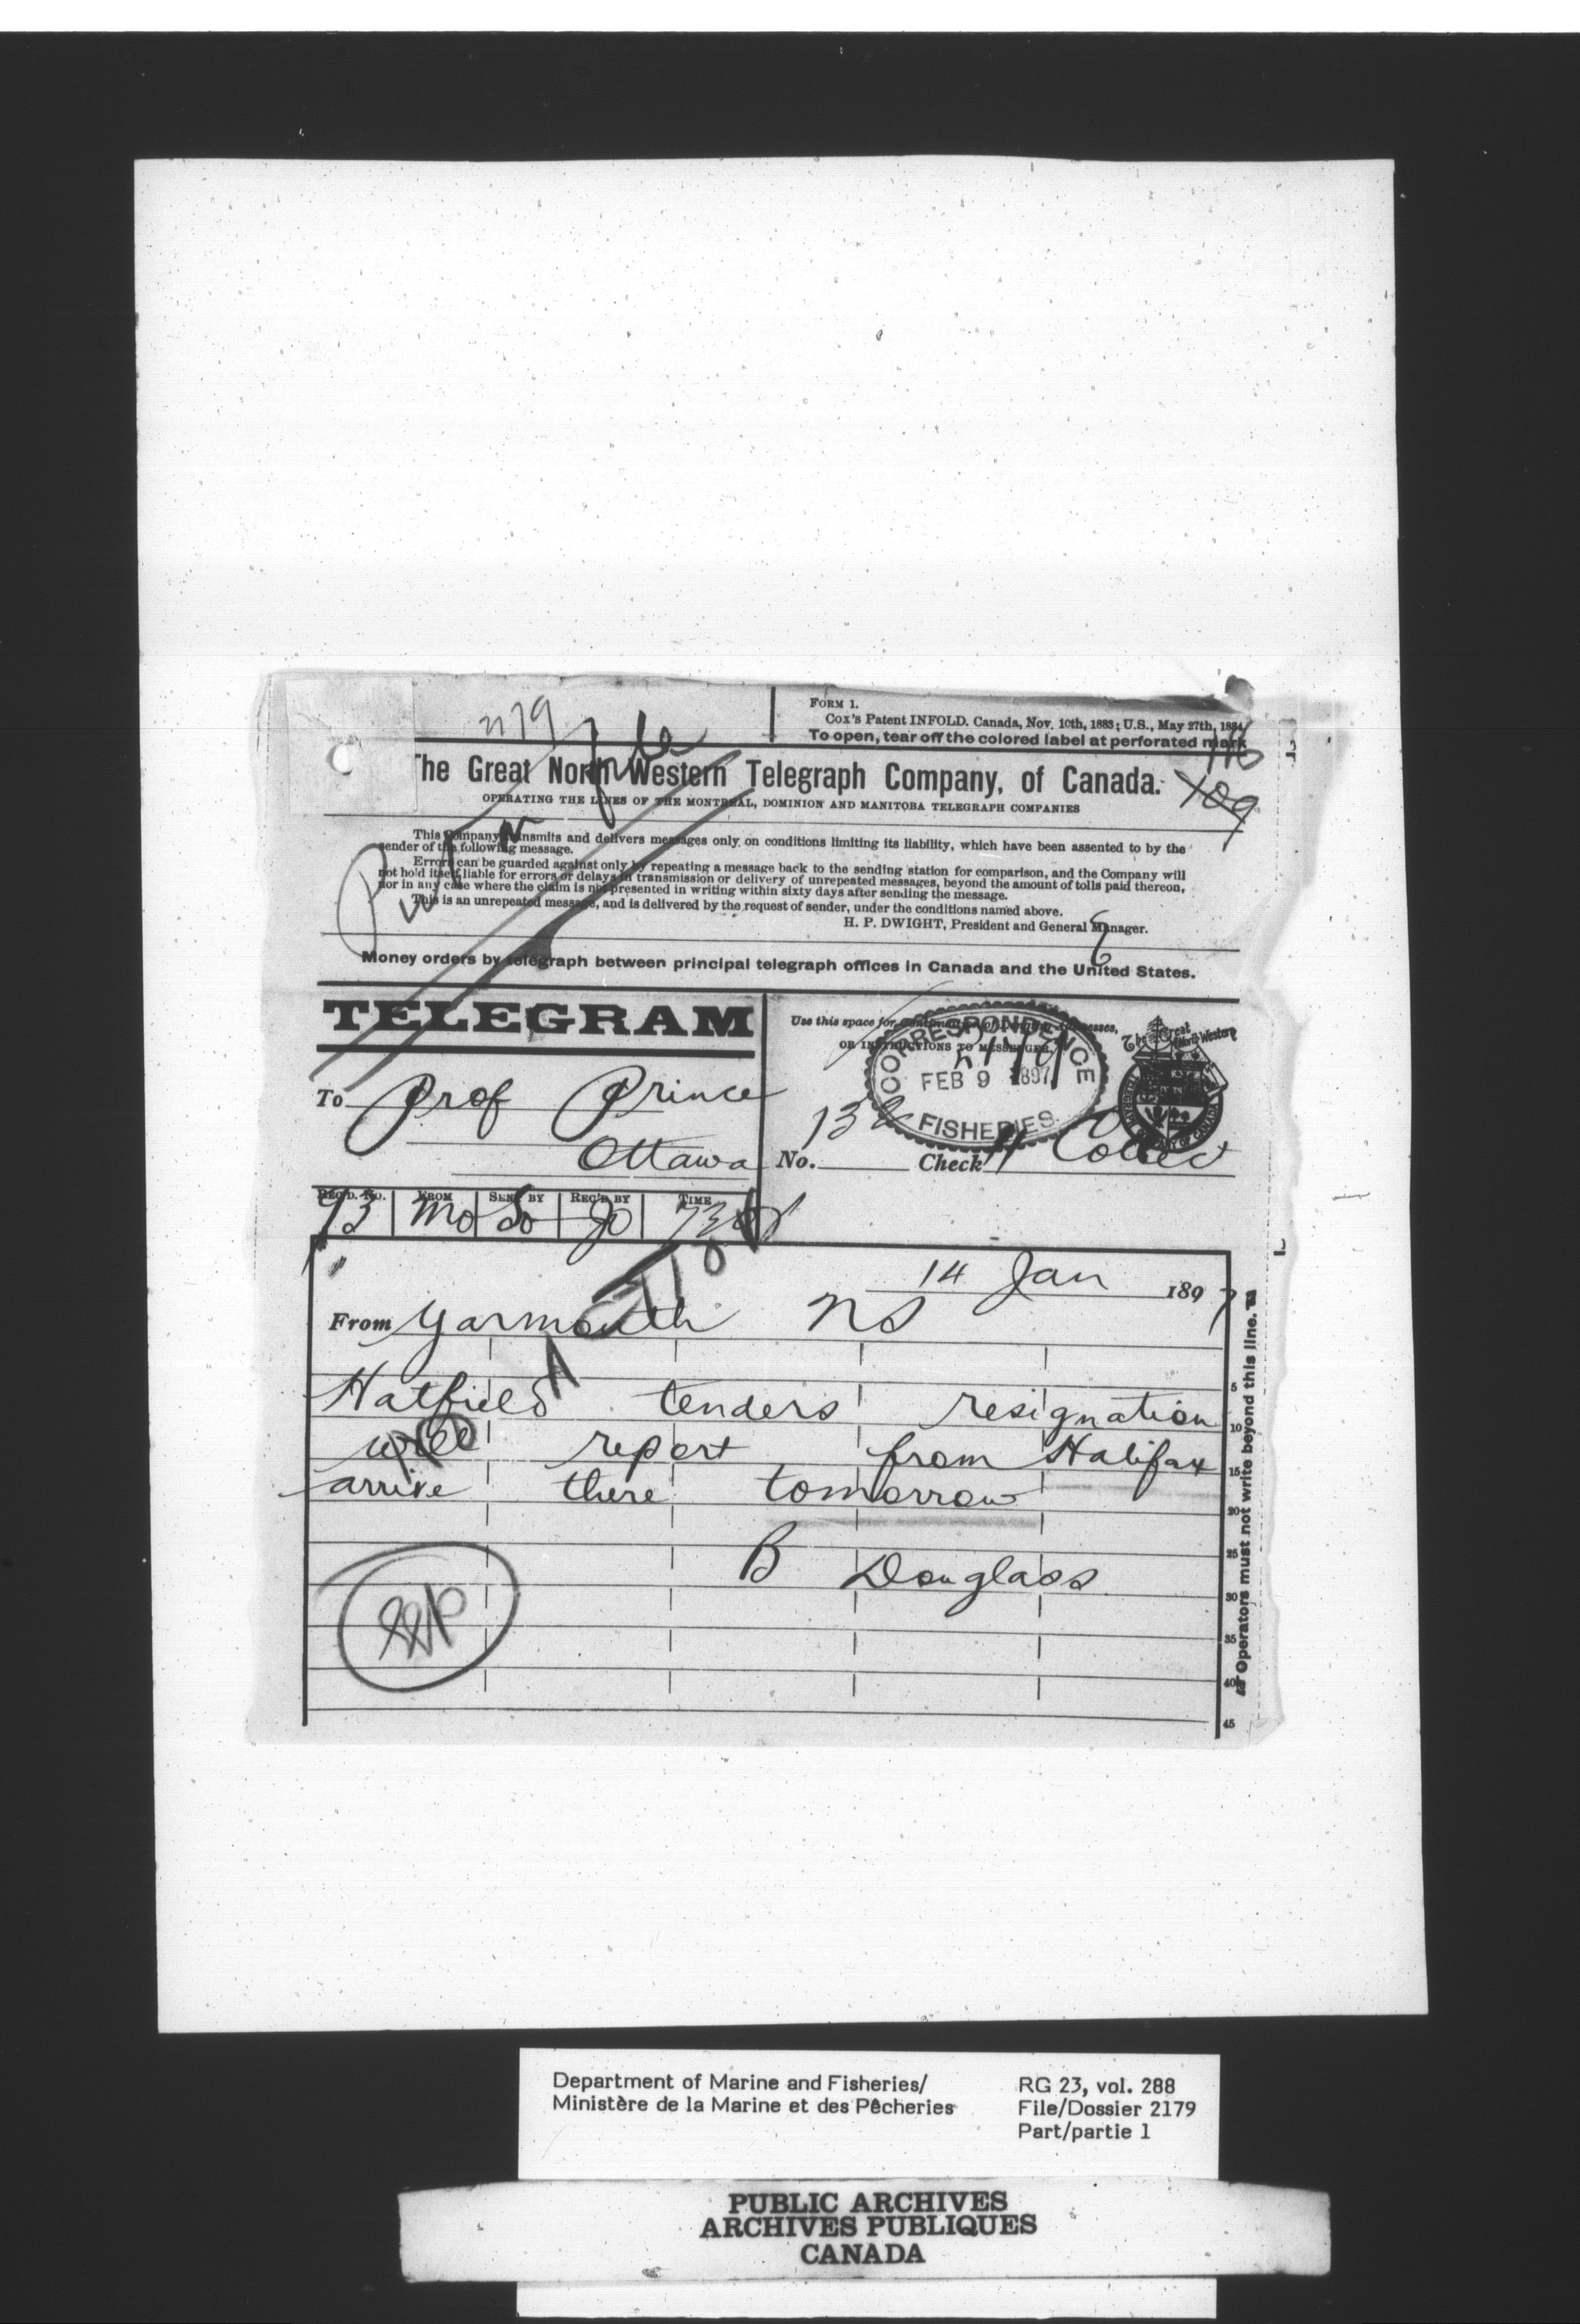 2179
FORM 1.
Cox's Patent INFOLD. Canada, Nov. 10th, 1883; U.S., May 27th, 1884
To open, tear off the colored label at perforated mark
The Great North Western Telegraph Company, of Canada.
OPERATING THE LINES OF THE MONTREAL, DOMINION AND MANITOBA TELEGRAPH COMPANIES
This Company transmits and delivers messages only on conditions limiting its liability, which have been assented to by the
sender of the following message.
Errors can be guarded against only by repeating a message back to the sending station for comparison, and the Company will
not hold itself liable for errors or delays in transmission or delivery of unrepeated messages, beyond the amount of tolls paid thereon,
nor in any case where the claim is not presented in writing within sixty days after sending the message.
This is an unrepeated message, and is delivered by the request of sender, under the conditions named above.
H. P. DWIGHT, President and General Manager.
Money orders by telegraph between principal telegraph offices in Canada and the United States.
TELEGRAM
Use this space for
OR INSTRUCTIONS TO MESSENGER.
The Great North Western
CORRESPONDENCE
FEB 9 1897
FISHERIES.
To Prof Prince
Ottawa
No. Check 11 Collect
REC'D. NO. FROM SENT BY REC'D BY TIME
93 Mo So Jo 730
14 Jan 1897
From Yarmouth NS
Hatfield tenders resignation
will report from Halifax
arrive there tomorrow
B Douglass
5
10
15
20
25
30
35
40
45
Operators must not write beyond this line.
Department of Marine and Fisheries/
Ministère de la Marine et des Pêcheries
RG 23, vol. 288
File/Dossier 2179
Part/partie 1
PUBLIC ARCHIVES
ARCHIVES PUBLIQUES
CANADA